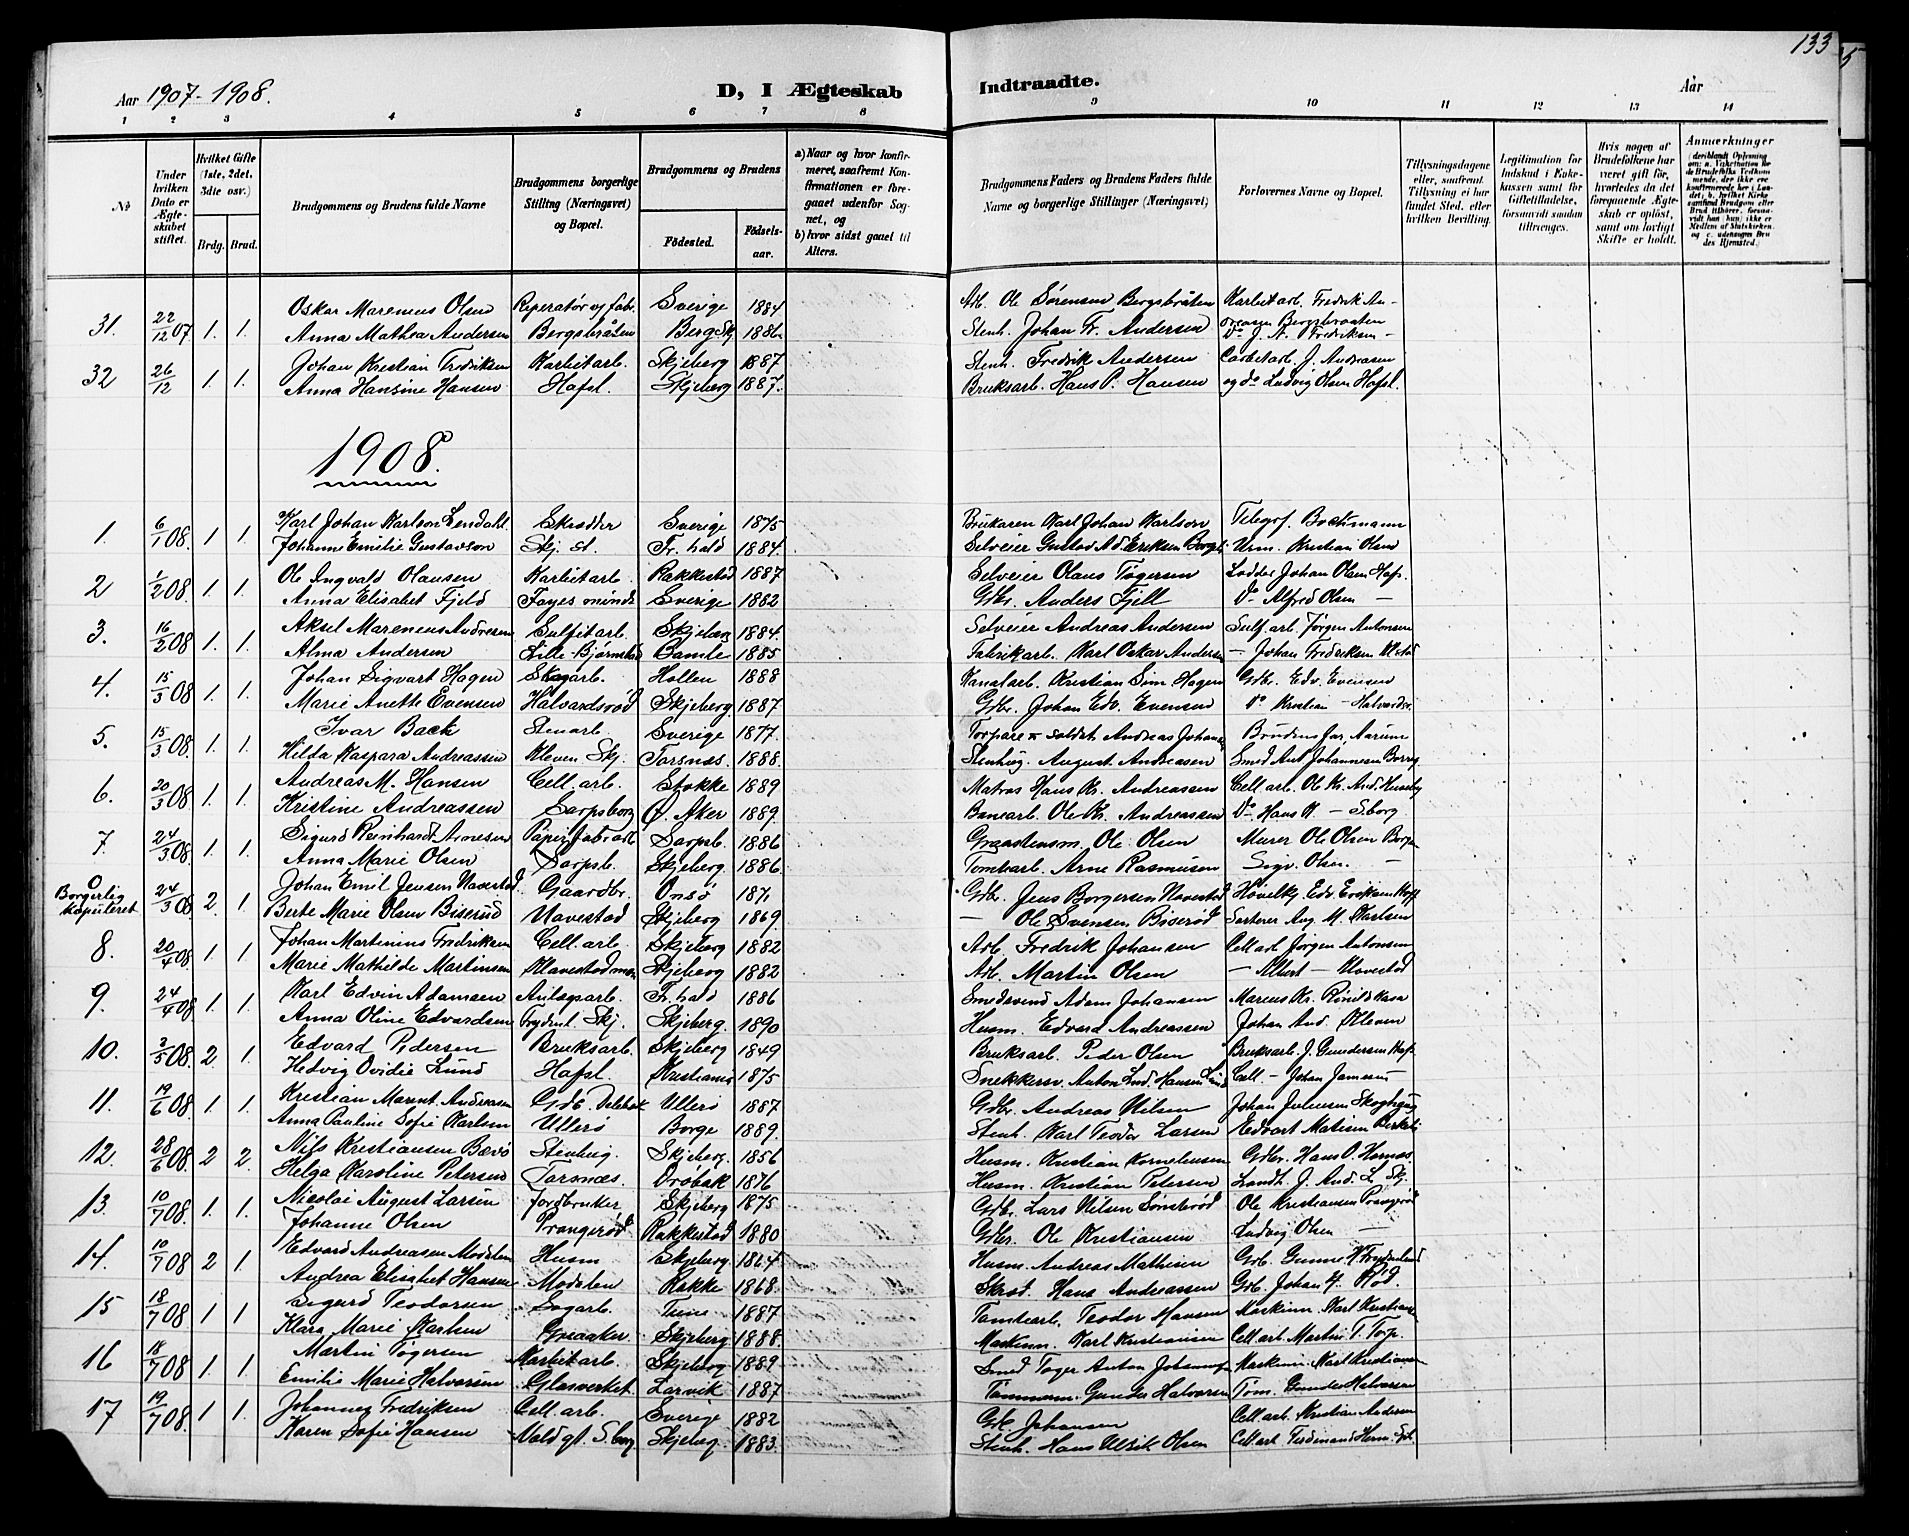 133
5
Aar 1907-1908.
D, I Ægteskab
Indtraadte.
Aar
1 2 3 4 5 6 7 8 9 10 11 12 13 14
№
Under hvilken Dato er Ægteskabet stiftet.
Hvilket Gifte (1ste, 2det, 3die osv.)
Brdg. Brud.
Brudgommens og Brudens fulde Navne
Brudgommens borgerlige Stilling (Næringsvei) og Bopæl.
Brudgommens og Brudens
Fødested. Fødselsaar.
a) Naar og hvor konfirmeret, saafremt Konfirmationen er foregaaet udenfor Sognet, og
b) hvor sidst gaaet til Alters.
Brudgommens Faders og Brudens Faders fulde Navne og borgerlige Stillinger (Næringsvei)
Forlovernes Navne og Bopæl.
Tillysningsdagene eller, saafremt Tillysning ei har fundet Sted, efter hvilken Bevilling.
Legitimation for Indskud i Enkekassen samt for Giftetilladelse, forsaavidt saadan tiltrænges.
Hvis nogen af Brudefolkene har været gift før, hvorledes da det foregaaende Ægteskab er opløst, samt om lovligt Skifte er holdt.
Anmærkninger
31. 22/12 07 1. 1. Oskar Marenius Olsen Reperatør og fab. Sverige 1884 Arb. Ole Sørensen Bergsbråten Karbitarb. Fredrik An-
Anna Mathea Andersen Bergsbråten Berg Skj. 1886 Stenh. Johan Fr. Andersen dreasen Bergsbraaten
Do J. A. Fredriksen -
32 26/12 1. 1. Johan Kristian Fredriksen Karbitarb. Skjeberg 1887 Stenh. Fredrik Andersen Carbetarb. J. Andreasen
Anna Hansine Hansen Hafsl. Skjeberg 1887. Bruksarb. Hans P. Hansen og do Ludvig Olsen Hafsl.
1908.
1. 6/1 08. 1 1. Karl Johan Karlson Lendahl. Skrædder Sverige 1875 Brukaren Karl Johan Karlson Telegrf. Bochmann
Johanne Emilie Gustavson Skj. st. Fr.hald 1884. Selveier Gustav Ad Eriksen Urm. Kristian Olsen
2 1/2 08. 1. 1. Ole Ingvald Olausen Karbitarb. Rakkestad 1887 Selveier Olaus Tøgersen Lodder Johan Olsen Hafs.
Anna Elisabet Fjeld Sverige 1882 Gdbr. Anders Fjell Do Alfred Olsen -
3. 16/2 08 1. 1. Aksel Marenius Andresen Sulfitarb. Skjeberg 1884. Selveier Andreas Andersen Sulf.arb. Jørgen Antonsen
Alma Andersen Lille-Bjørnstad Bamle 1885 Fabrikarb. Karl Oskar Andersen - Johan Fredriksen
4. 15/3 08 1. 1. Johan Sigvart Hagen Skogarb. Hollen 1888 Kanalarb. Kristian Sim Hagen Gdbr. Edv. Evensen
Marie Anette Evensen Halvardsrød Skjeberg. 1887 Gdbr. Johan Edv. Evensen Do Kristian - Halvardsr.
5. 15/3 08. 1. 1. Ivar Back Stenarb. Sverige 1877 Torpare & soldat Andreas Johans. Brudens far, Aarum
Hilda Kaspara Andreassen Kleven Skj. Torsnæs. 1888. Stenhug. August Andreasen Smed Ant. Johannesen
6. 20/3 08. 1. 1. Andreas M. Hansen Cell. arb. Stokke 1889 Matros Hans Kr. Andreassen Cell.arb. Ole Kr. And.
Kristine Andreassen Sarpsborg Ø. Aker 1889. Banearb. Ole Kr. Andreassen Do Hans K. - Sborg
7. 24/3 08. 1. 1. Sigurd Reinhardt Arnesen Papirfabrarb Sarpsb. 1886 Graastensm. Ole Olsen Murer Ole Olsen
Anna Marie Olsen Sarpsb. Skjeberg 1886. Tomtarb. Arne Rasmusen Sigv. Olsen. -
0 Borgerlig kopuleret 24/3 08 2. 1 Johan Emil Jensen Navestad. Gaardbr. Onsø 1871 Gdb. Jens Borgersen Navestad Høvelby Edv. Eriksen Haff.
Berte Marie Olsen Biserud Navestad Skjeberg 1869 - Ole Svensen Biserød Sorterer Aug. M. Karlsen
8. 20/4 08 1. 1 Johan Martinius Fredriksen Cell. arb. Skjeberg 1882 Arb. Fredrik Johansen Cell arb Jørgen Antonsen
Marie Mathilde Martinsen Navestad Skjeberg 1882 Arb. Martin Olsen - Albert - Navestad
9. 24/4 08. 1. 1. Karl Edvin Adamsen Anlægsarb. Fr.hald 1886 Smedsvend Adam Johansen Marcus Kr.
Anna Oline Edvardsen Skj. Skjeberg. 1890 Husm. Edvard Andreassen Johan And. Kleven
10. 3/5 08. 2 1. Edvard Pedersen Bruksarb. Skjeberg 1849 Bruksarb. Peder Olsen Bruksarb. J. Gundersen Hafs.
Hedvig Ovidie Lund Hafsl. Kristiania 1875 Snekkersv. Anton Lud. Hansen Lund Cell - Johan
11. 19/6 08. 1. 1. Kristian Marent. Andreasen Gdb. Ullerø 1887 Gdbr. Andreas Nilsen Johan
Anna Pauline Sofie Karlsen Ullerø Borge 1889. Stenh. Karl Teodor Larsen Edvart
12. 28/6 08. 2 2. Nils Kristiansen Bævø Stenhug. Skjeberg. 1856 Husm. Kristian Korneliussen Gdbr. Hans O. Hornæs
Helga Karoline Petersen Torsnæs. Drøbak 1876 Husm. Kristian Petersen Landh. J. And. L. Skj.
13. 10/7 08. 1. 1. Nicolai August Larsen Jordbruker Skjeberg 1875 Gdb. Lars Nilsen Sønsterød Ole Kristiansen Prangerød
Johanne Olsen Prangerød Rakkestad 1880 Gdbr. Ole Kristiansen Ludvig Olsen -
14. 10/7 08 2 1. Edvard Andreasen Modalen Husm. Skjeberg. 1864 Husm. Andreas Mathisen Grb. Gunne
Andrea Elisabet Hansen Modalen Rakke 1868. Skrød. Hans Andreassen Gdb. Johan H. Rød.
15 18/7 08 1 1 Sigurd Teodorsen Sagarb. Tune 1887 Tomtearb. Teodor Hansen Maskinm. Karl Kristians
Klara Marie Karlsen Greaaker Skjeberg 1888. Maskinm. Karl Kristiansen Cell arb. Martin T. Torp.
16 18/7 08 1 1 Martin Tøgersen Karbitarb. Skjeberg 1889 Smed Tøger Anton Johannes Maskinm Karl Kristianse
Emilie Marie Halvorsen Glasverket Larvik 1887 Tømmerm. Gunder Halvorsen Tøm. Gunder Halvorsen
17 19/7 08 1 1. Johannes Fredriksen Cell. arb. Sverige 1882 Gdb Johansen Cell. arb. Kristian Andersen
Karen Sofie Hansen Vold gt. Sborg Skjeberg. 1883. Stenh. Hans Ulrik Olsen Cell arb Ferdinand